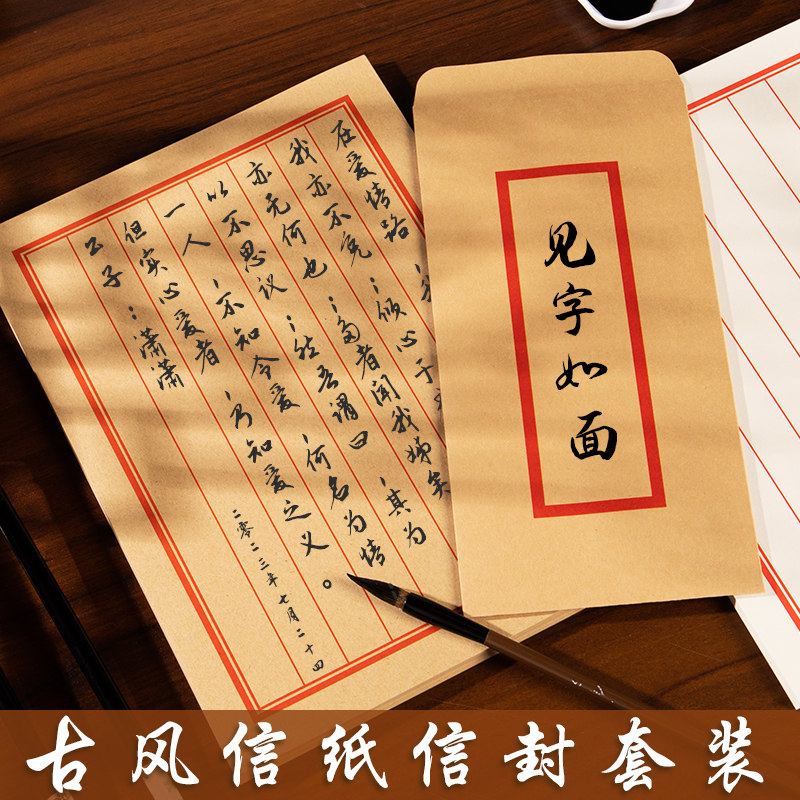 在爱情路;我
我亦不免;倾心于
亦无何也;多者闻我娣矣
以不思议;然吾谓曰;其为
一人;不知令爱;何名为情
但实心爱者;乃知爱之义。
公子;潇潇
二零二三年七月二十四
见字如面
古风信纸信封套装